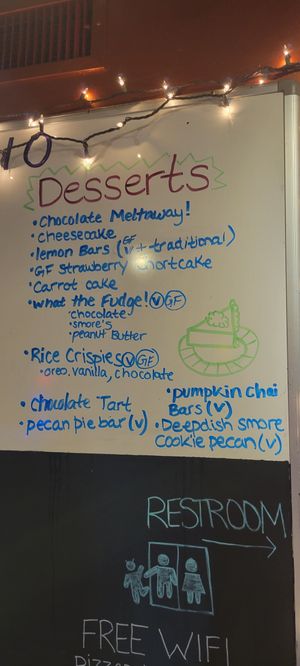 10
Desserts
• Chocolate Meltaway!
• Cheesecake
• lemon Bars (GF V + traditional)
• GF Strawberry Shortcake
• Carrot cake
• What the Fudge! V GF
• chocolate
• smore's
• peanut Butter
• Rice Crispies V GF
• oreo, vanilla, chocolate
• chocolate Tart
• pecan pie bar (v)
• pumpkin chai
Bars (v)
• Deepdish smore
Cookie pecan (v)
RESTROOM
FREE WIFI